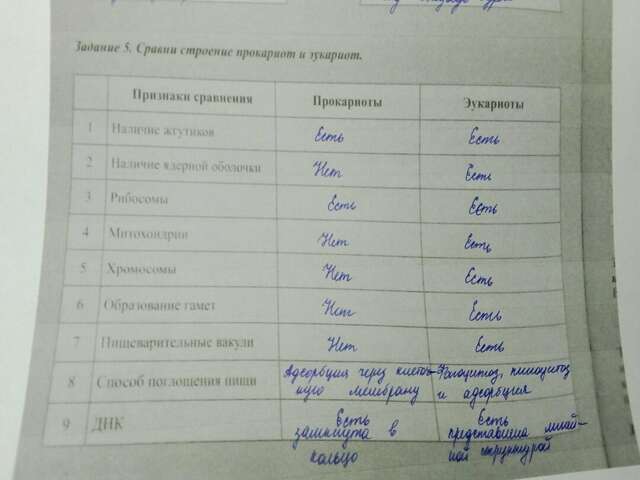 Задание 5. Сравни строение прокариот и эукариот.
Признаки сравнения Прокариоты Эукариоты
1 Наличие жгутиков Есть Есть
2 Наличие ядерной оболочки Нет Есть
3 Рибосомы Есть Есть
4 Митохондрии Нет Есть
5 Хромосомы Нет Есть
6 Образование гамет Нет Есть
7 Пищеварительные вакуоли Нет Есть
8 Способ поглощения пищи Адсорбция через клеточ- Фагоцитоз, пиноцитоз
ную мембрану и адсорбция
9 ДНК Есть Есть
замкнута в представлена линей-
кольцо ной структурой